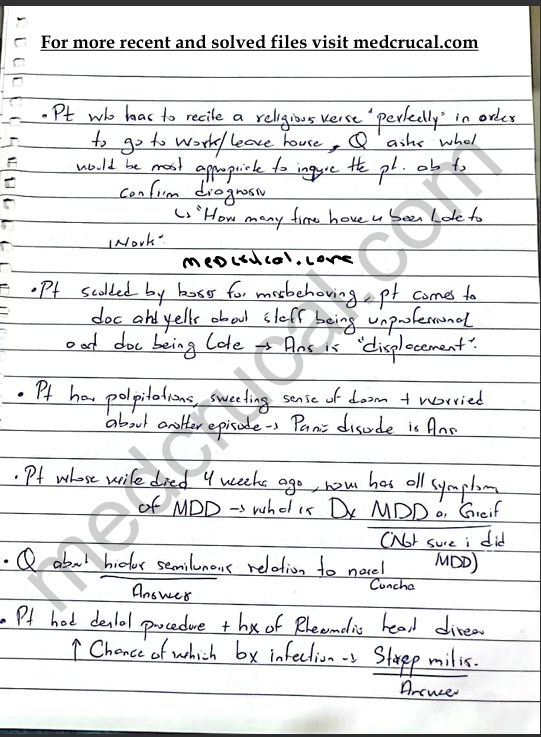 For more recent and solved files visit medcrucal.com
• Pt who has to recite a religious verse "perfectly" in order
to go to work/leave house, Q asks what
would be most appropriate to inquire the pt. ab to
confirm diagnosis
↳ "How many time have u been late to
work".
medcrucal.com
• Pt scolded by boss for misbehaving, pt comes to
doc and yells about staff being unprofessional
and doc being late → Ans is "displacement".
• Pt has palpitations, sweeting sense of doom + worried
about another episode → Panic disorde is Ans
• Pt whose wife died 4 weeks ago, now has all symptom
of MDD → what is Dx MDD or Greif
(Not sure i did
MDD)
• Q about hiatus semilunaris relation to nasel
Concha
Answer
• Pt had dental procedure + hx of Rheumatic heart disease
↑ Chance of which bx infection → Strep mitis.
Answer
medcrucal.com